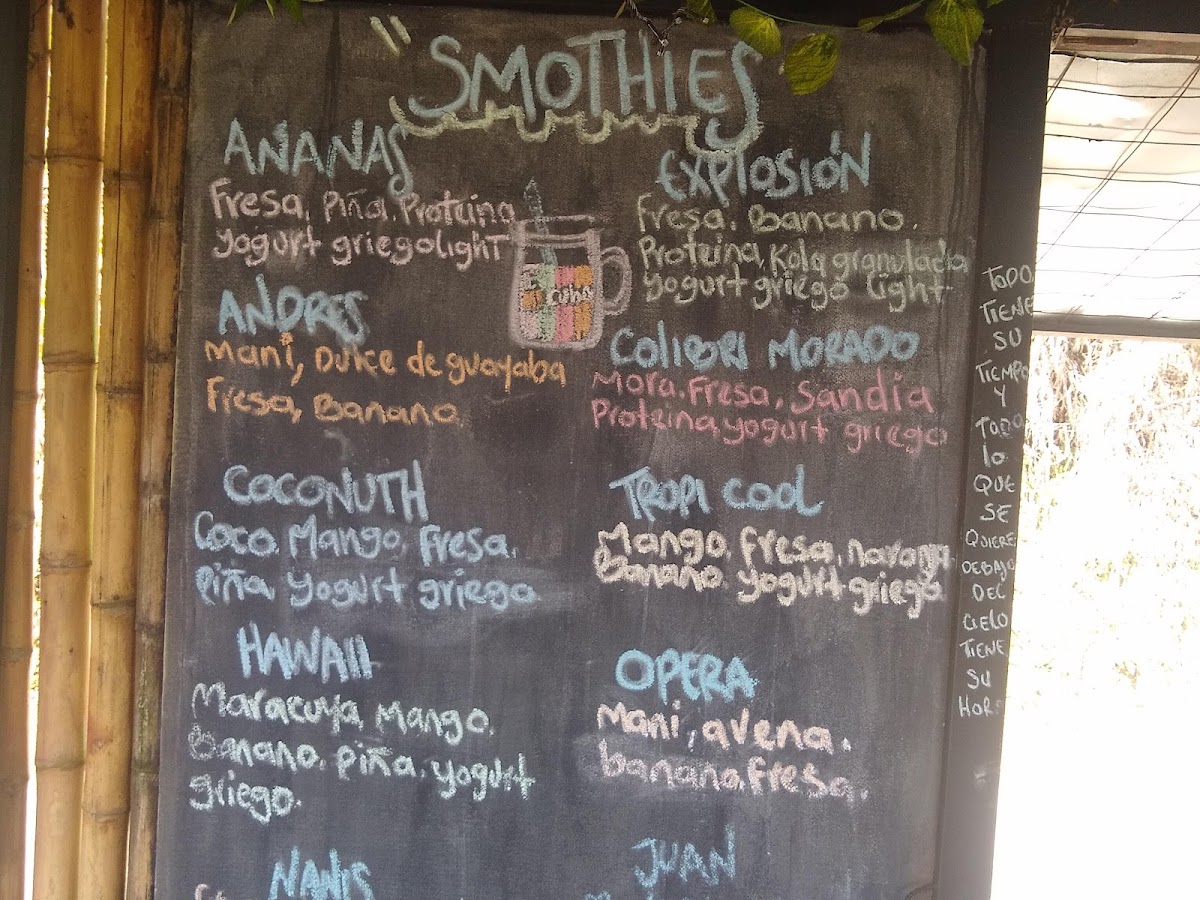 " SMOTHIES
ANANAS
Fresa, Piña, Proteina
yogurt griego light
ANDRES
Mani, Dulce de guayaba
Fresa, Banano.
COCONUTH
Coco, Mango, Fresa,
piña, yogurt griego
HAWAII
Maracuya, mango,
Banano, piña, yogurt
griego.
NANIS
EXPLOSIÓN
Fresa, Banano,
Proteina, Kola granulada
yogurt griego light
COLIBRI MORADO
Mora, Fresa, Sandía
Proteina yogurt griego
TROPI COOL
Mango, fresa, naranja
Banano, yogurt griego
OPERA
Mani, avena,
banano, fresa.
JUAN
TODO
TIENE
SU
TIEMPO
Y
TODO
lo
QUE
SE
QUIERE
DEBAJO
DEL
CIELO
TIENE
SU
HORA